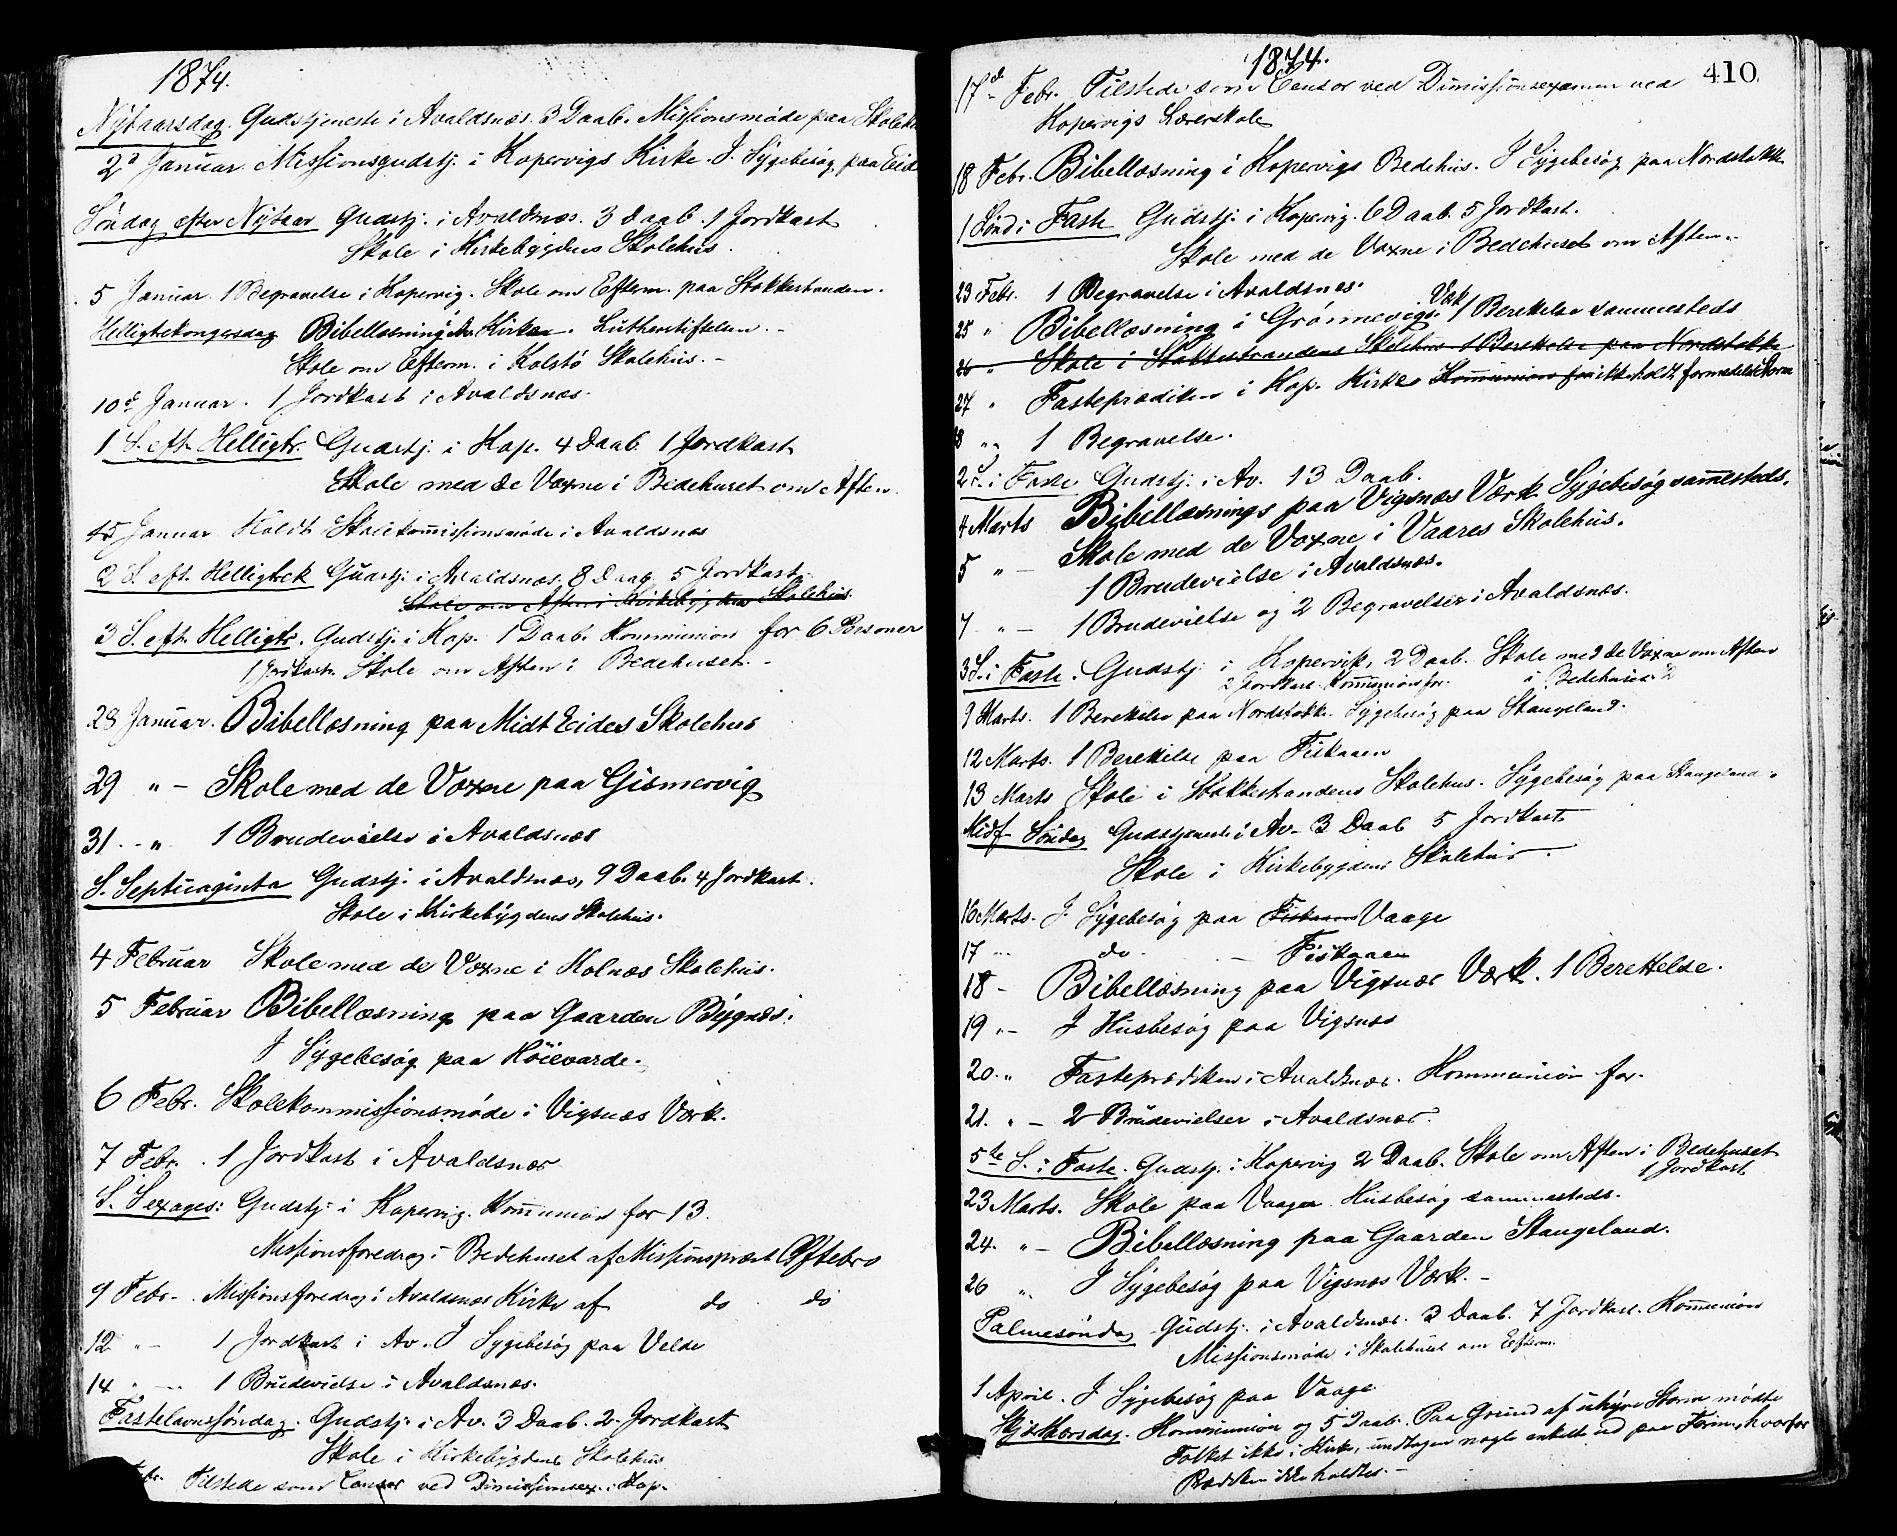 1874.
Nytaarsdag. Gudstjeneste i Avaldsnæs. 3 Daab. Missionsmøde paa
2d Januar. Missionsgudstj. i Kopervigs Kirke. I Sygebesøg paa Eide
Søndag efter Nytaar Gudstj. i Avaldsnæs. 3 Daab. 1 Jordkast
Skole i Kirkebygdens Skolehus.
5 Januar. 1 Begravelse i Kopervig. Skole om Efterm. paa Stokkestranden.
Helligtrekongersdag Bibellæsning i Kirken. Lutherstiftelsen.
Skole om Efterm. i Kolstø Skolehus.
10d Januar. 1 Jordkast i Avaldsnæs.
1 S. eft. Helligtr. Gudstj. i Kop. 4 Daab 1 Jordkast
Skole med de Voxne i Bedehuset om Aften.
15 Januar Holdt Skolekommissionsmøde i Avaldsnæs
2 S. eft. Helligtrek Gudstj. i Avaldsnæs. 8 Daab, 5 Jordkast.
Skole om Aften i Kirkebygdens Skolehus.
3 S. eft. Helligtr. Gudstj. i Kop. 1 Daab. Kommunion for 6 Personer
1 Jordkast. Skole om Aften i Bedehuset.
28 Januar. Bibellæsning paa Midt Eides Skolehus
29 " – Skole med de Voxne paa Gismervig
31 - " 1 Brudevielse i Avaldsnæs
S. Septuaginta Gudstj. i Avaldsnæs, 9 Daab. 4 Jordkast.
Skole i Kirkebygdens Skolehus.
4 Februar Skole med de Voxne i Kolnæs Skolehus.
5 Februar Bibellæsning paa Gaarden Bygnæs.
I Sygebesøg paa Høievarde.
6 Febr. Skolekommissionsmøde i Vigsnæs Værk.
7 Febr. 1 Jordkast i Avaldsnæs
S. Sexages: Gudstj. i Kopervig. Kommunion for 13.
Missionsforedrag i Bedehuset af Missionspræst Oftebro
9 Febr. Missionsforedrag i Avaldsnæs Kirke af do do
12 " – 1 Jordkast i Av. I Sygebesøg paa Velde
14 " – 1 Brudevielse i Avaldsnæs.
Fastelavnssøndag. Gudstj. i Av. 3 Daab. 2 Jordkast
Skole i Kirkebygdens Skolehus
Febr. Tilstede som Censor ved Dimissionsex. i Kop.
1874.
410.
17d Febr. Tilstede som Censor ved Dimissionsexamen ved
Kopervigs Lærerskole
18 Febr. Bibellæsning i Kopervigs Bedehus. I Sygebesøg paa Nordstokke
1 Sønd i Faste Gudstj. i Kopervig. 6 Daab. 5 Jordkast.
Skole med de Voxne i Bedehuset om Aften.
23 Febr. 1 Begravelse i Avaldsnæs.
25 " Bibellæsning i Grønnevigs Værk 1 Berettelse sammesteds
26 " Skole i Stokkestrandens Skolehus 1 Berettelse paa Nordstokke
27 " Fasteprædiken i Kop. Kirke Kommunion for ikke holdt formedelst Storm
28 " 1 Begravelse.
2 S. i Faste Gudstj. i Av. 13 Daab.
4 Marts Bibellæsnings paa Vigsnæs Værk Sygebesøg sammesteds.
5 " – Skole med de Voxne i Vaares Skolehus.
1 Brudevielse i Avaldsnæs.
7 " – 1 Brudevielse og 2 Begravelser i Avaldsnæs.
3 S. i Faste. Gudstj. i Kopervik, 2 Daab. Skole med de Voxne om Aften
2 Jordkast. Kommunion for. i Bedehuset
9 Marts. 1 Berettelse paa Nordstokke. Sygebesøg paa Stangeland.
12 Marts. 1 Berettelse paa Fiskaaen
13 Marts Skole i Stokkestrandens Skolehus. Sygebesøg paa Stangeland.
Midf. Søndag Gudstjeneste i Av. 3 Daab 5 Jordkast
Skole i Kirkebygdens Skolehus.
16 Marts. I Sygebesøg paa Fiskaaen Vaage
17 " do. – Fiskaaen
18 - Bibellæsning paa Vigsnæs Værk. 1 Berettelse.
19 " – I Husbesøg paa Vigsnæs
20. " Fasteprædiken i Avaldsnæs. Kommunion for.
21. " – 2 Brudevielser i Avaldsnæs.
5te S. i Faste. Gudstj. i Kopervig 2 Daab. Skole om Aften i Bedehuset
1 Jordkast
23 Marts. Skole paa Vaage. Husbesøg sammesteds.
24. " – Bibellæsning paa Gaarden Stangeland.
26 " I Sygebesøg paa Vigsnæs Værk.
Palmesøndag Gudstj. i Avaldsnæs. 3 Daab. 7 Jordkast. Kommunion
Missionsmøde i Skolehuset om Efterm.
1 April. I Sygebesøg paa Vaage
Skjærthorsdag. Kommunion og 5 Daab. Paa Grund af uhyre Storm mødte
Folket ikke i Kirke, undtagen nogle enkelte, hvorfor
Prædiken ikke holdtes.